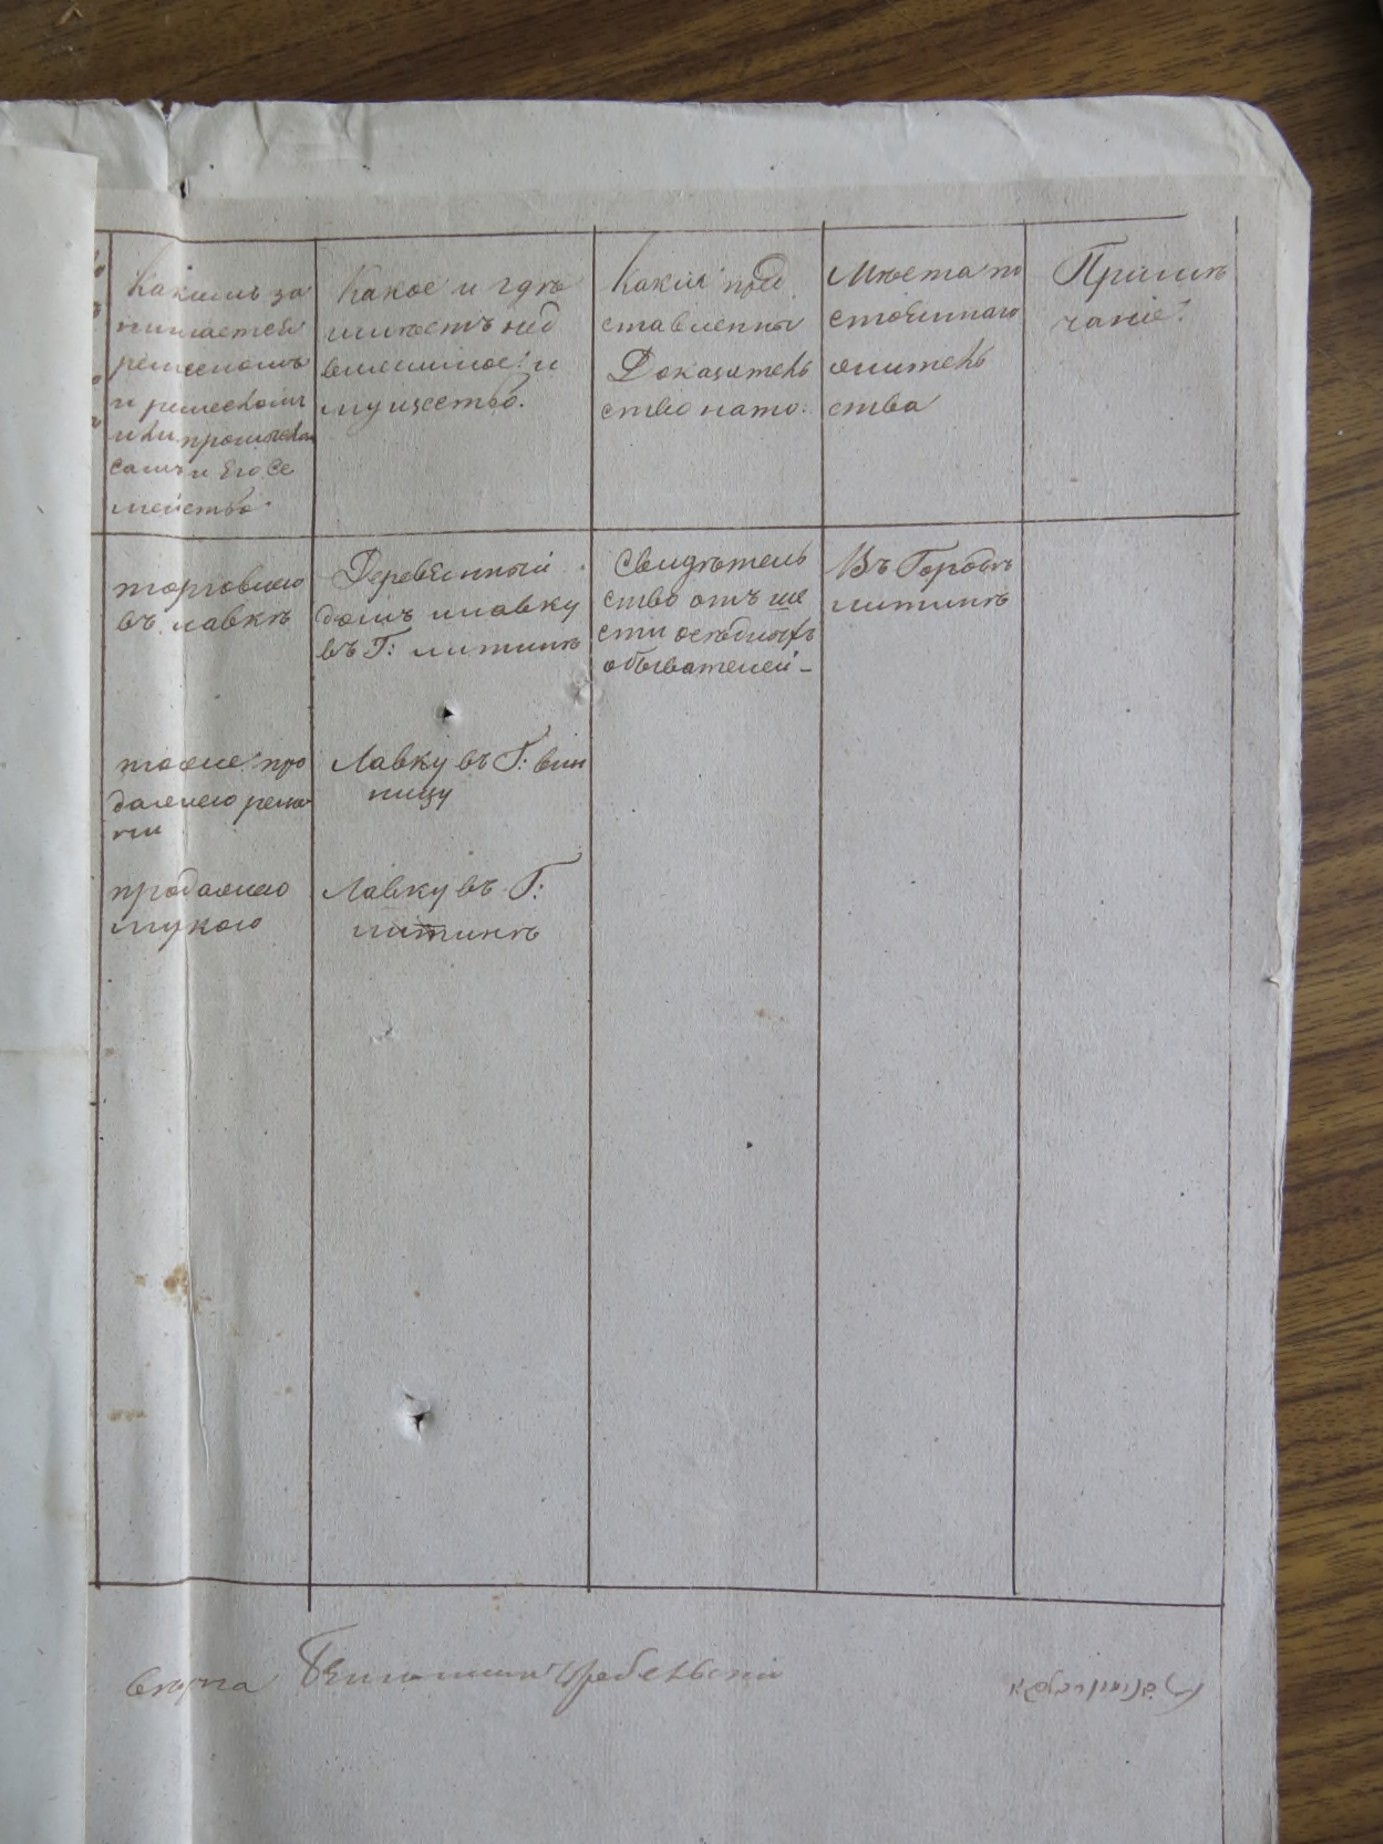 Какимъ за
нимается
ремесломъ
и ремесломъ
или промысло
самъ и Его Се
мейство.
Какое и гдѣ
имѣетъ нед
вижимое и
мущество.
Какия пред
ставленны
Доказатель
ство на то:
Мѣста по
стояннаго
житель
ства
Примѣ
чание.
торговлею
въ лавкѣ
Деревянный
домъ и лавку
въ Г: литинѣ
Свидѣтель
ство отъ ше
сти осѣдлыхъ
обывателей –
Въ Городѣ
литинѣ
тоже про
дажею
Лавку въ Г: вин
ницу
продажею
мукою
Лавку въ Г:
литинѣ